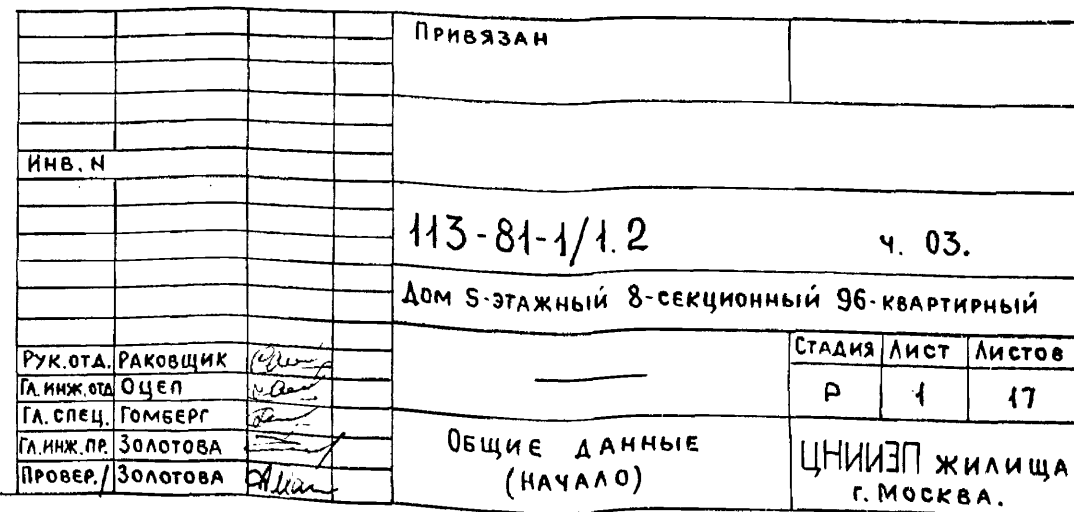 Привязан
Инв. N
113-81-1/1.2 ч. 03.
Дом 5-этажный 8-секционный 96-квартирный
Стадия Лист Листов
Р 1 17
Рук. отд. Раковщик
Гл. инж. отд Оцеп
Гл. спец. Гомберг
Гл. инж. пр. Золотова
Провер. Золотова
Общие данные
(начало)
ЦНИИЭП жилища
г. Москва.